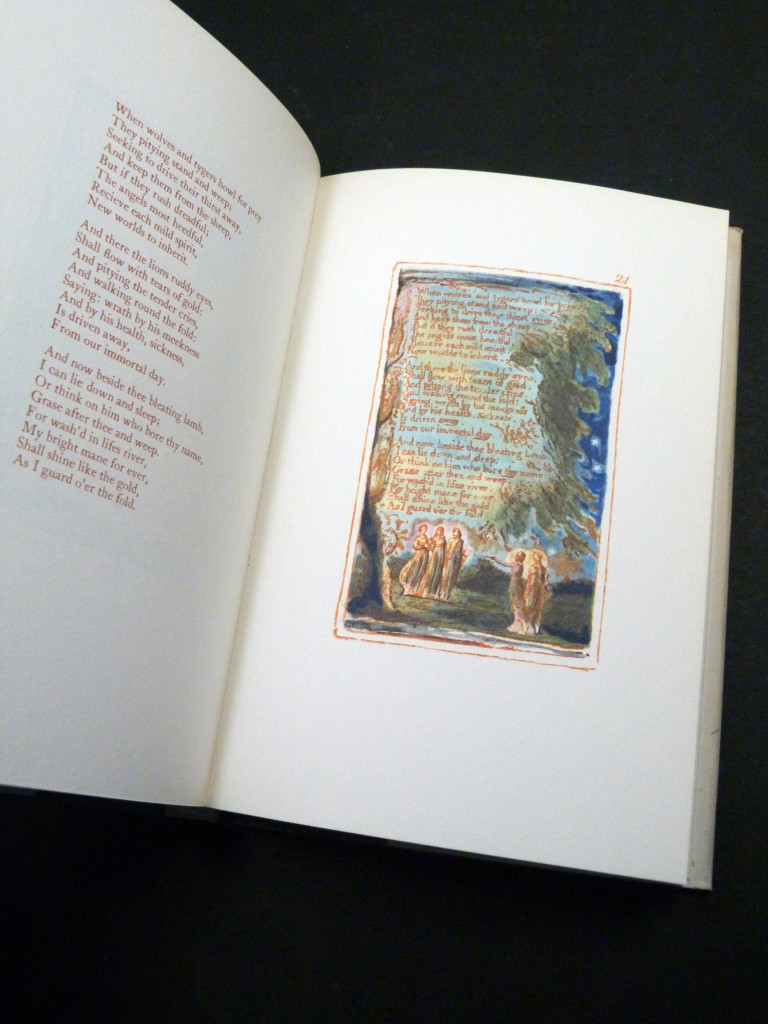 When wolves and tygers howl for prey
They pitying stand and weep;
Seeking to drive their thirst away,
And keep them from the sheep,
But if they rush dreadful;
The angels most heedful,
Recieve each mild spirit,
New worlds to inherit.
And there the lions ruddy eyes,
Shall flow with tears of gold:
And pitying the tender cries,
And walking round the fold:
Saying: wrath by his meekness
And by his health, sickness,
Is driven away,
From our immortal day.
And now beside thee bleating lamb,
I can lie down and sleep;
Or think on him who bore thy name,
Grase after thee and weep.
For wash'd in lifes river,
My bright mane for ever,
Shall shine like the gold,
As I guard o'er the fold.
21
When wolves and tygers howl for prey
They pitying stand and weep;
Seeking to drive their thirst away
And keep them from the sheep
But if they rush dreadful
The angels most heedful
Recieve each mild spirit
New worlds to inherit.
And there the lions ruddy eyes
Shall flow with tears of gold:
And pitying the tender cries
And walking round the fold:
Saying: wrath by his meekness
And by his health, sickness,
Is driven away,
From our immortal day.
And now beside thee bleating lamb
I can lie down and sleep;
Or think on him who bore thy name
Grase after thee and weep.
For wash'd in lifes river
My bright mane for ever
Shall shine like the gold
As I guard o'er the fold